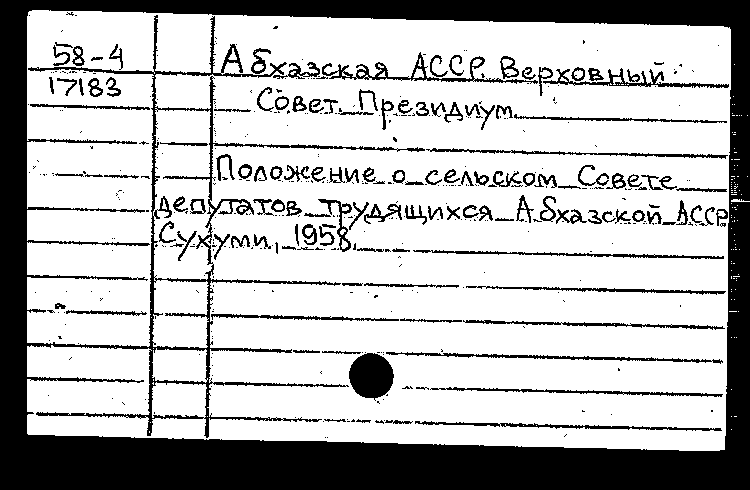 58-4
17183
Абхазская АССР. Верховный
Совет. Президиум.
Положение о сельском Совете
депутатов трудящихся Абхазской АССР
Сухуми, 1958.